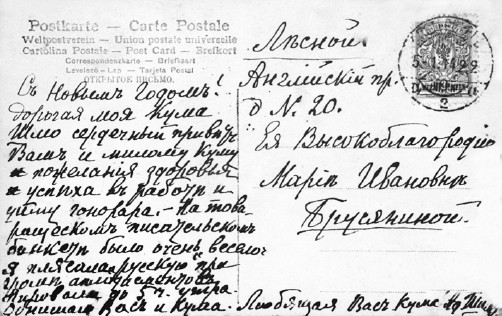 Postkarte — Carte Postale
Weltpostverein — Union postale universelle
Cartolina Postale — Post Card — Brefkort
Correspondenzkarte — Briefkaart
Levelező-Lap — Tarjeta Postal
ОТКРЫТОЕ ПИСЬМО.
Съ Новымъ Годомъ!
дорогая моя Кума
Шлю сердечный приветъ
Вамъ и милому Куму
и пожелания здоровья
и успеха въ работѣ и
гонорара. — На това
рищескомъ писательскомъ
банкетѣ было очень весело
я плясала русскую при
громѣ аплодисментовъ
Пировали до 5 ч. утра
Вспоминали Васъ и Кума.
Любящая Васъ Кума
Лѣсной.
Английскій пр.
д N. 20.
Ея Высокоблагородію
Маріи Ивановнѣ
Брусяниной.
2